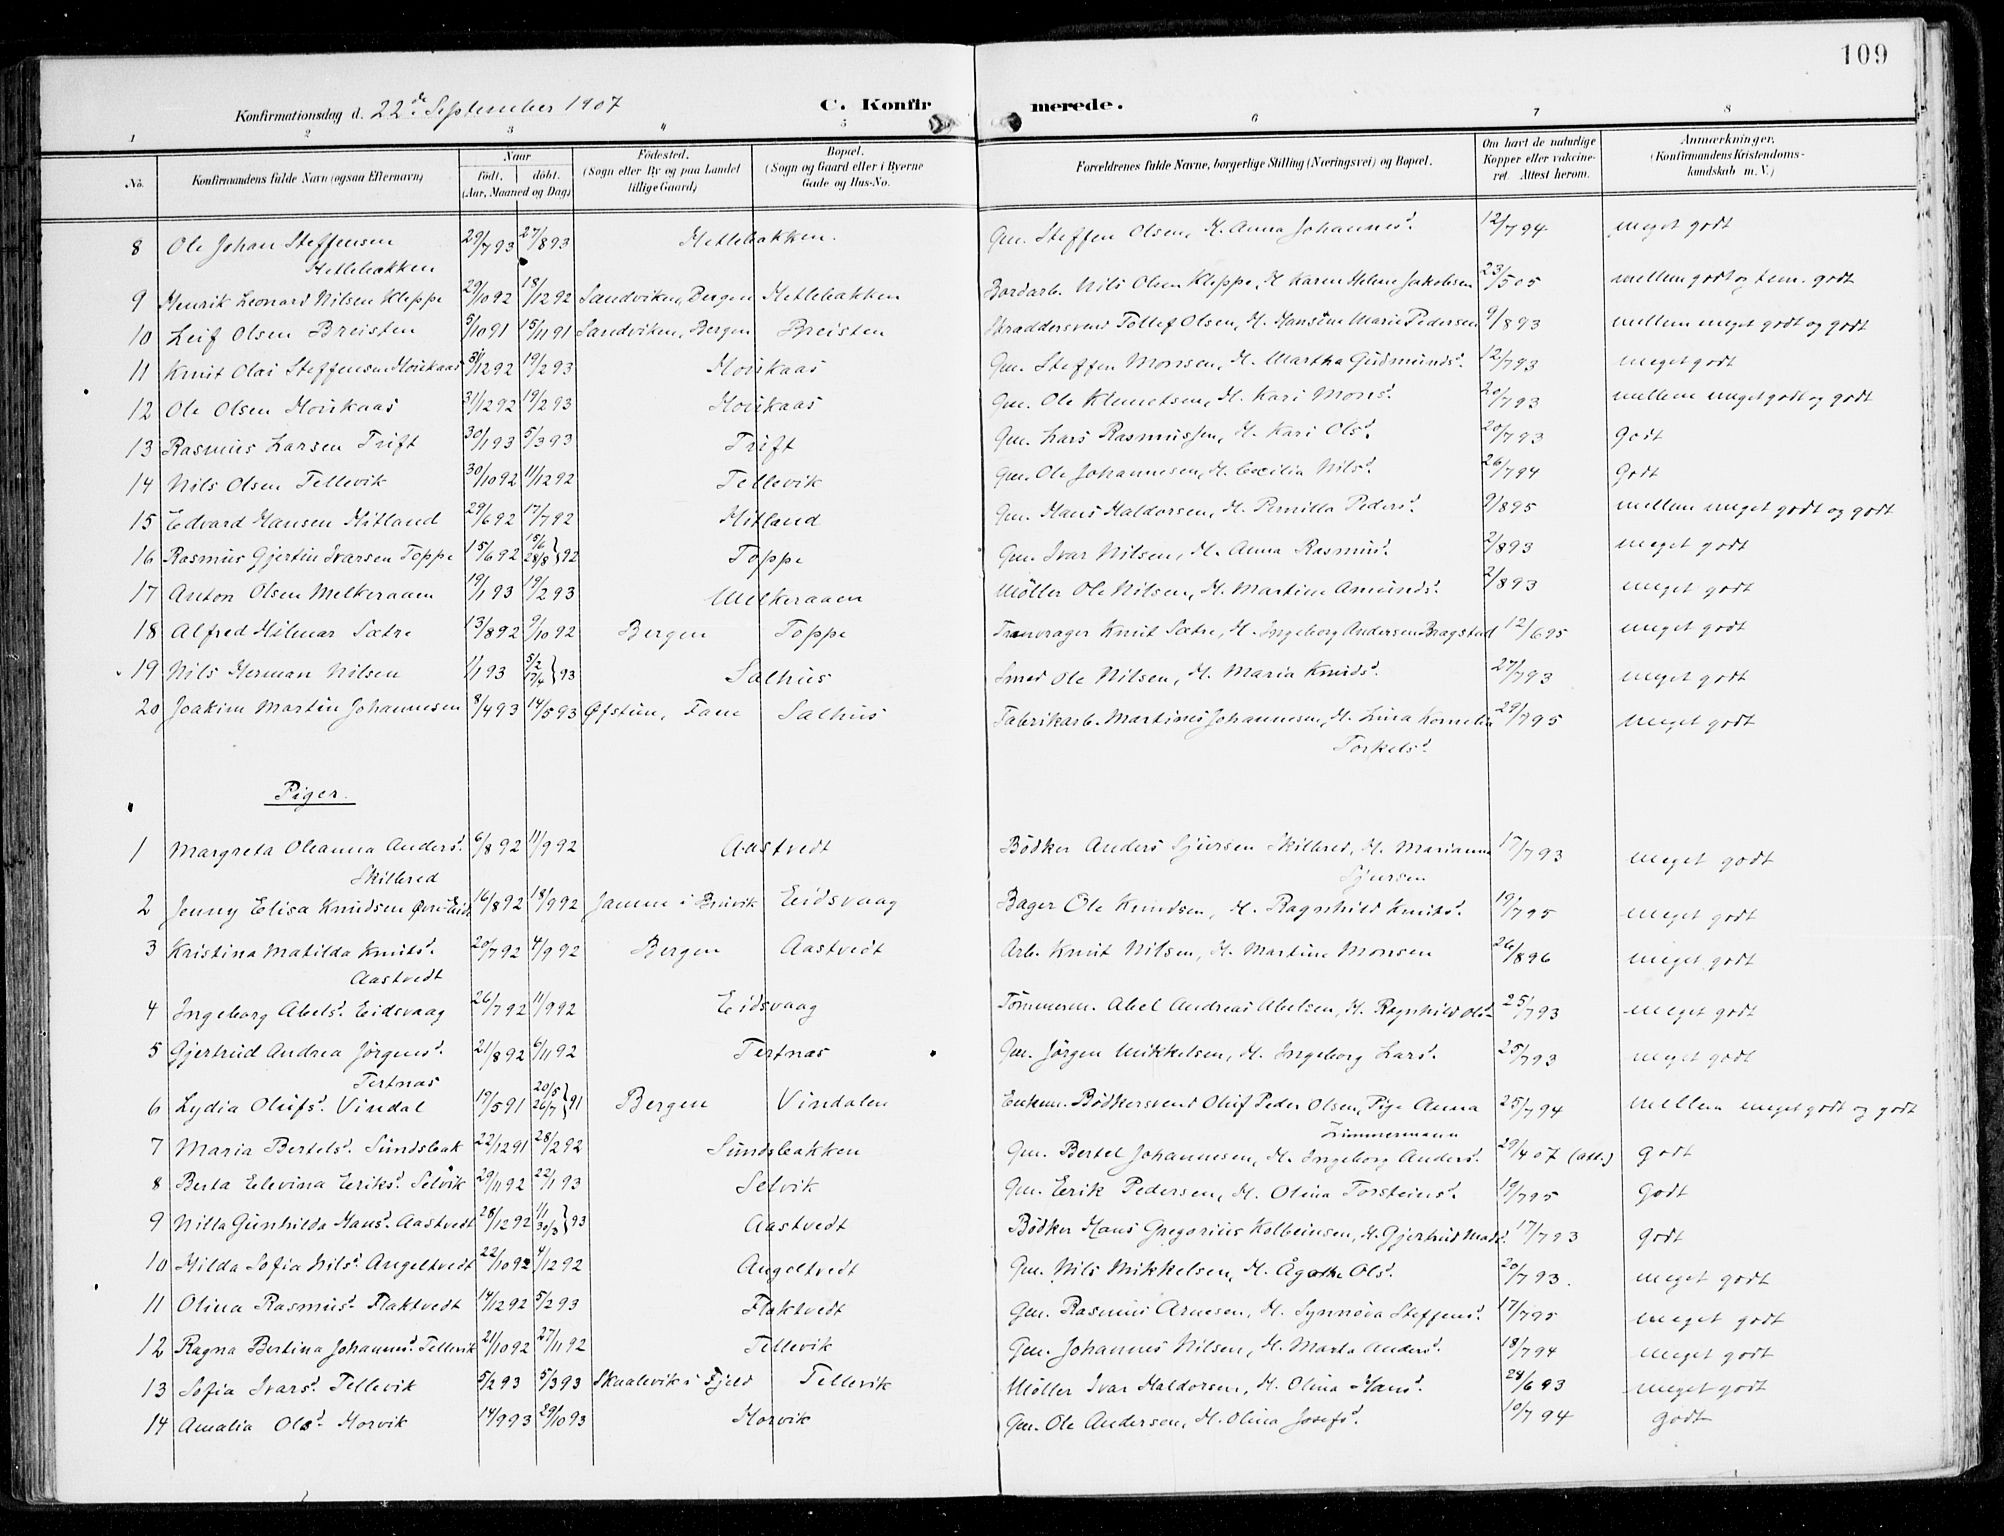 109
Konfirmationsdag d. 22de September 1907 C. Konfirmerede.
1 2 3 4 5 6 7 8
No. Konfirmandens fulde Navn (ogsaa Efternavn) Naar født. døbt. (Aar, Maaned og Dag) Fødested. (Sogn eller By og paa Landet tillige Gaard) Bopæl. (Sogn og Gaard eller i Byerne Gade og Hus-No. Forældrenes fulde Navne, borgerlige Stilling (Næringsvei) og Bopæl. Om havt de naturlige Kopper eller vakcineret. Attest herom. Anmærkninger. (Konfirmandens Kristendomskundskab m. V.)
8 Ole Johan Steffensen 29/7 93 27/8 93 Hetlebakken. Gm. Steffen Olsen, H. Anna Johannesd. 12/7 94 meget godt
Hetlebakken
9 Henrik Leonard Nilsen Kleppe 29/10 92 18/12 92 Sandviken, Bergen Hetlebakken Bordarb. Nils Olsen Kleppe, H. Karen Helene Jakobsen 23/5 05 mellem godt og tem. godt
10 Leif Olsen Breisten 5/10 91 15/11 91 Sandviken, Bergen Breisten Skraddersvend Tollef Olsen, H. Hansine Marie Pedersen 9/8 93 mellem meget godt og godt
11 Knut Olai Steffensen Hovikaas 31/12 92 19/2 93 Hovikaas Gm. Steffen Monsen, H. Martha Gudmundsd. 12/7 93 meget godt
12 Ole Olsen Hovikaas 31/12 92 19/2 93 Hovikaas Gm. Ole Klemetsen, H. Kari Monsd. 20/7 93 mellem meget godt og godt
13 Rasmus Larsen Trift 30/1 93 5/3 93 Trift Gm. Lars Rasmussen, H. Kari Olsd. 20/7 93 Godt
14 Nils Olsen Tellevik 30/10 92 11/12 92 Tellevik Gm. Ole Johannesen, H. Cecilia Nilsd. 26/7 94 Godt
15 Edvard Hansen Hitland 29/6 92 17/7 92 Hitland Gm. Hans Haldorsen, H. Pernilla Pedersd. 9/8 95 mellem meget godt og godt
16 Rasmus Gjertin Ivarsen Toppe 15/6 92 15/6 28/8 } 92 Toppe Gm. Ivar Nilsen, H. Anna Rasmusd. 2/8 93 meget godt
17 Anton Olsen Melkeraaen 19/1 93 19/2 93 Melkeraaen Møller Ole Nilsen, H. Martine Amundsd. 2/8 93 meget godt
18 Alfred Hilmar Sætre 13/8 92 9/10 92 Bergen Toppe Tranvrager Knut Sætre, H. Ingeborg Andersen Bragstad 12/6 95 meget godt
19 Nils Herman Nilsen 1/1 93 5/2 17/4 } 93 Salhus Smed Ole Nilsen, H. Maria Knudsd. 27/7 93 meget godt
20 Joakim Martin Johannesen 8/4 93 14/5 93 Øfstun, Fane Salhus Fabrikarb. Martinus Johannesen, H. Lina Kornelia 29/7 95 meget godt
Torkelsd.
Piger.
1 Margreta Oleanna Andersd. 6/8 92 11/9 92 Aastvedt Bødker Anders Sjursen Skilbred, H. Marianna 17/7 93 meget godt
Skilbred Sjursen
2 Jenny Elisa Knudsen Øvre-Eide 16/8 92 18/9 92 Jamne i Bruvik Eidsvaag Bager Ole Knudsen, H. Ragnhild Knutsd. 19/7 95 meget godt
3 Kristina Matilda Knutsd. 20/7 92 4/9 92 Bergen Aastvedt Arb. Knut Nilsen, H. Martine Monsen 26/8 96 meget godt
Aastvedt
4 Ingeborg Abelsd. Eidsvaag 26/7 92 11/9 92 Eidsvaag Tømmerm. Abel Andreas Abelsen, H. Ragnhild Olsd. 25/7 93 meget godt
5 Gjertrud Andrea Jørgensd. 21/8 92 6/11 92 Tertnas Gm. Jørgen Mikkelsen, H. Ingeborg Larsd. 25/7 93 meget godt
Tertnas
6 Lydia Olufsd. Vindal 19/5 91 20/5 26/7 } 91 Bergen Vindalen Enkem. Bødkersvend Oluf Peder Olsen, Pige Anna 25/7 94 mellem meget godt og godt
Zimmermann
7 Maria Bertelsd. Sundsbak 22/12 91 28/2 92 Sundsbakken Gm. Bertel Johannesen, H. Ingeborg Andersd. 29/4 07 (att.) godt
8 Berta Elevina Eriksd. Selvik 29/11 92 22/1 93 Selvik Gm. Erik Pedersen, H. Olina Torsteinsd. 19/7 95 Godt
9 Nilla Gunhilda Hansd. Aastvedt 28/12 92 1/1 30/3 } 93 Aastvedt Bødker Hans Gregorius Kolbeinsen, H. Gjertrud Madsd. 17/7 93 Godt
10 Hilda Sofia Nilsd. Angeltvedt 22/10 92 4/12 92 Angeltvedt Gm. Nils Mikkelsen, H. Ågothe Olsd. 20/7 93. meget godt
11 Olina Rasmusd. Flaktvedt 14/12 92 5/2 93 Flaktvedt Gm. Rasmus Arnesen, H. Synnøva Steffensd. 17/7 95 meget godt
12 Ragna Bertina Johannesd. Tellevik 21/10 92 27/11 92 Tellevik Gm. Johannes Nilsen, H. Marta Andersd. 18/7 94 meget godt
13 Sofia Ivarsd. Tellevik 5/2 93 5/3 93 Skaalevik i Fjeld Tellevik Møller Ivar Haldorsen, H. Olina Hansd. 24/6 93 meget godt
14 Amalia Olsd. Horvik 14/9 93 29/10 93 Horvik Gm. Ole Andersen, H. Olina Josefsd. 10/7 94 Godt